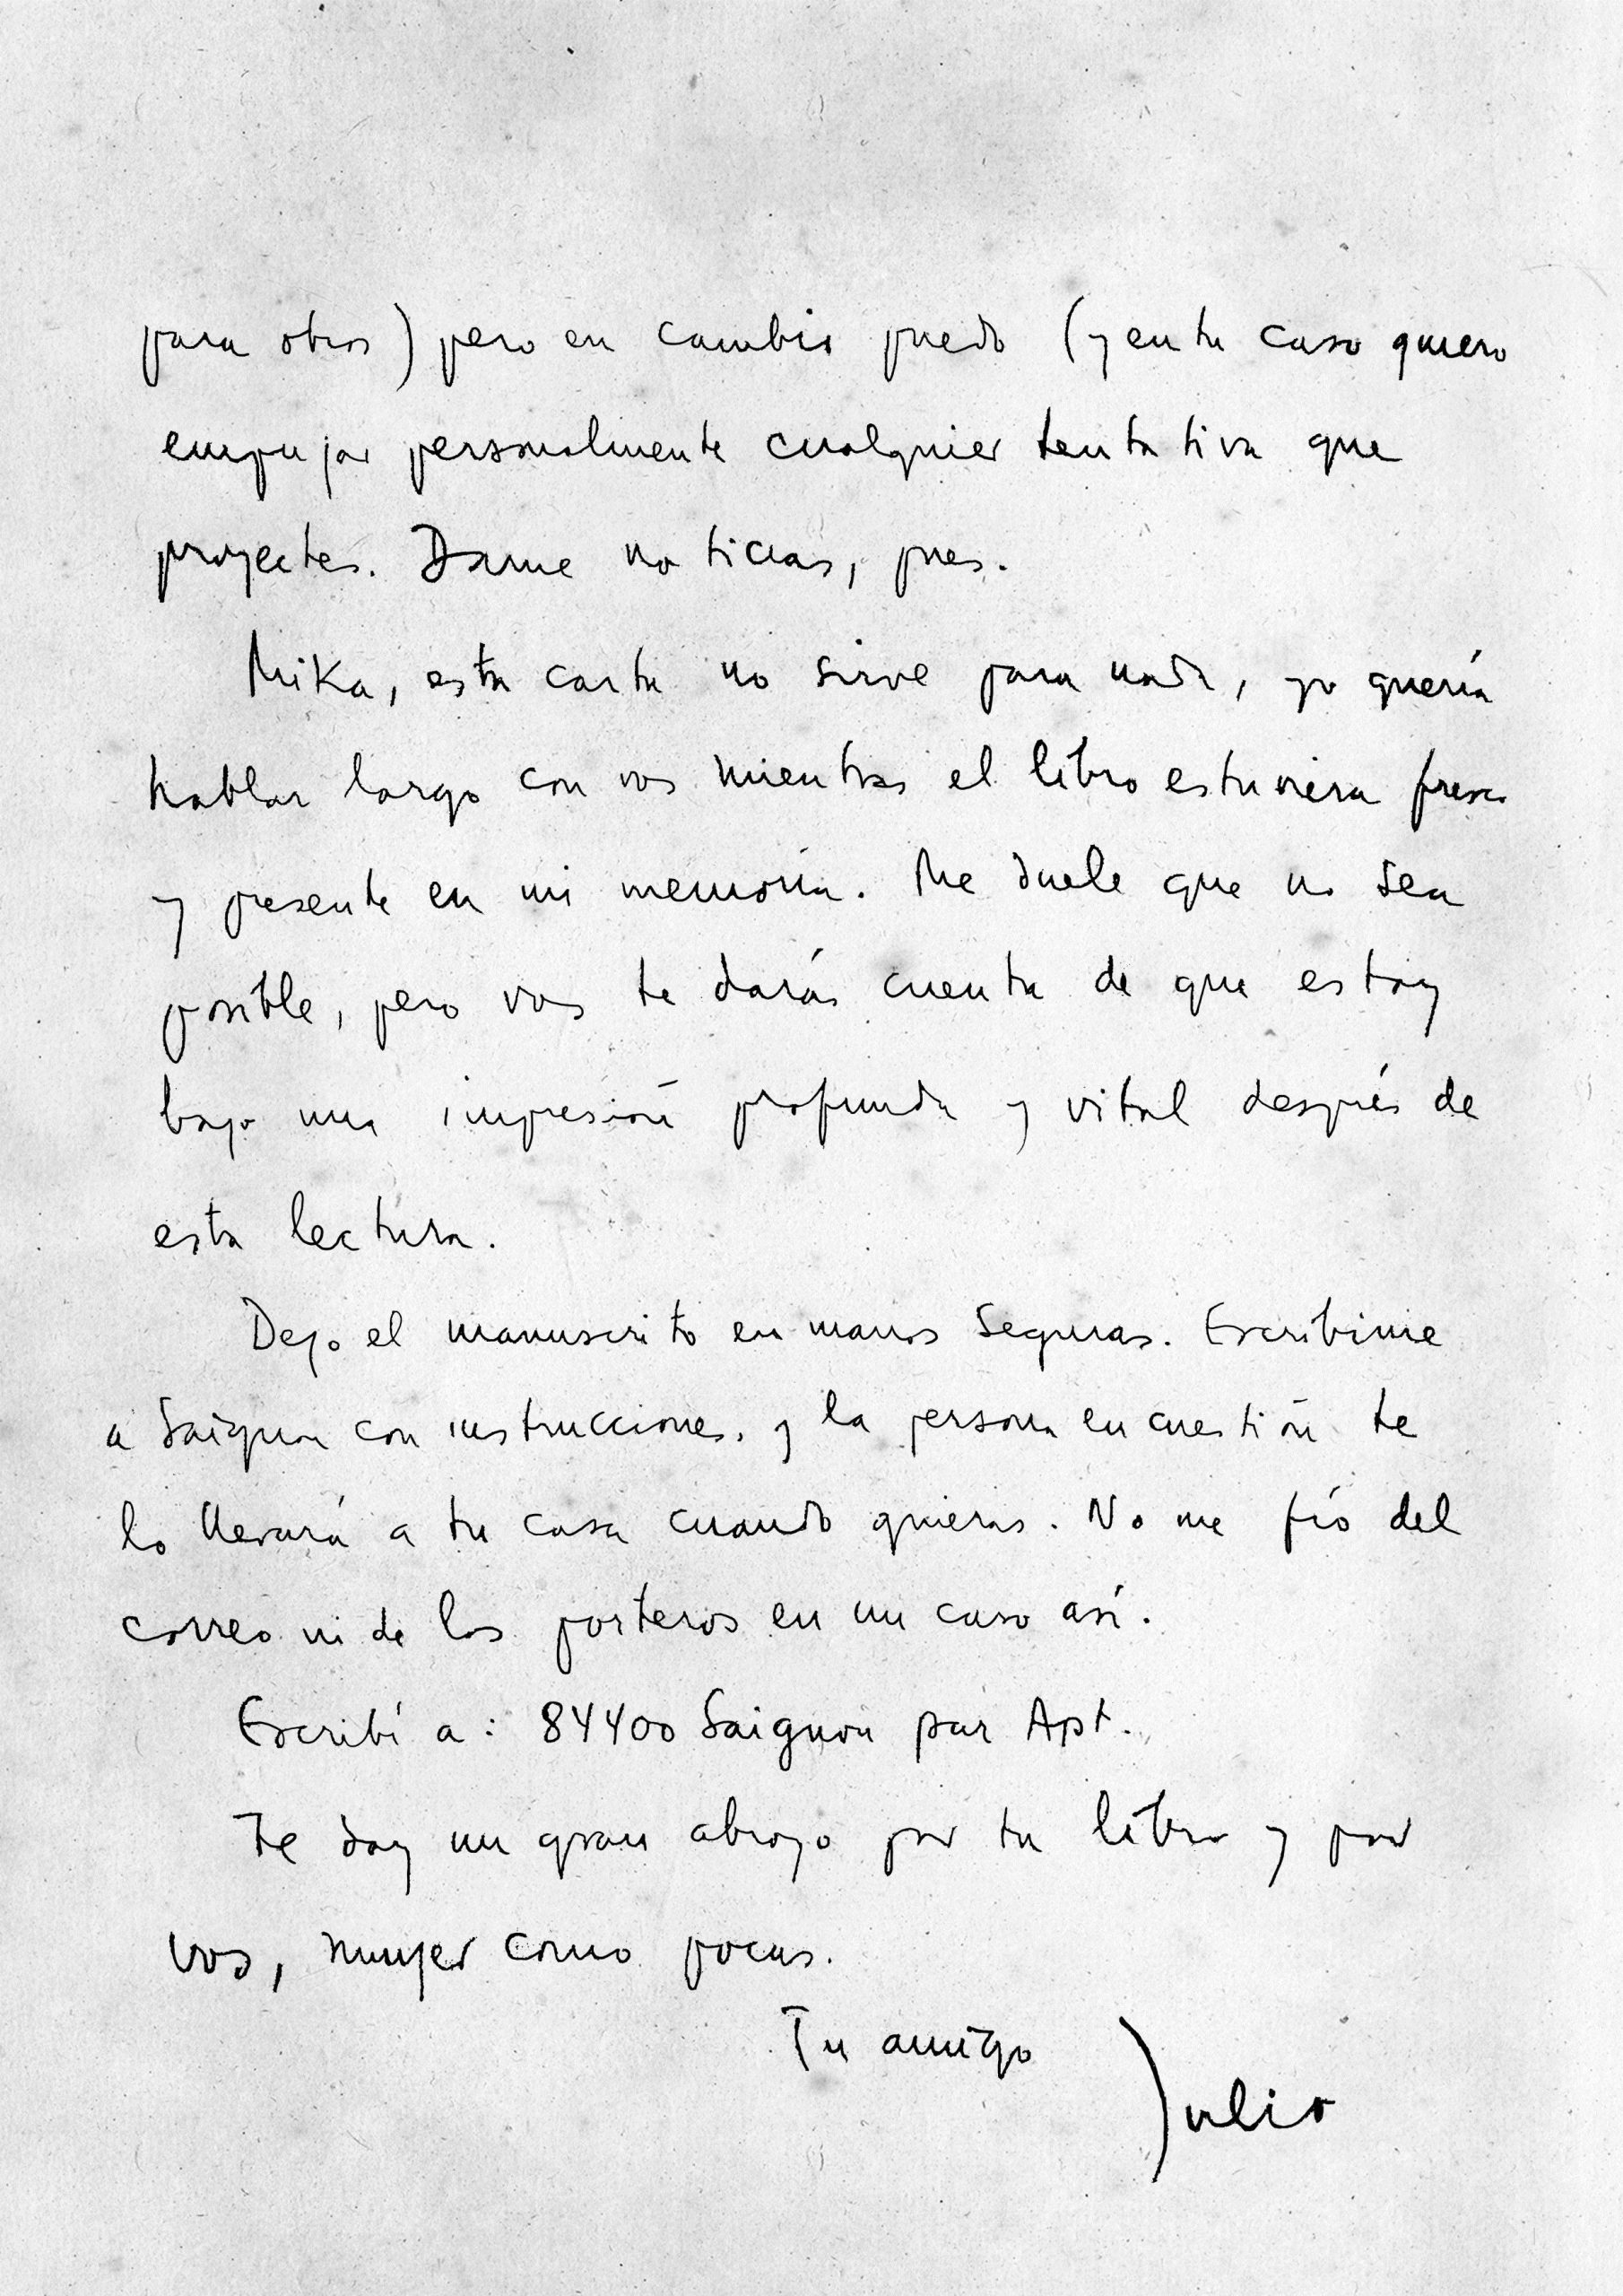 para otros) pero en cambio puedo (y en tu caso quiero
empujar personalmente cualquier tentativa que
proyectes. Dame noticias, pues.
Mika, esta carta no sirve para nada, yo quería
hablar largo con vos mientras el libro estuviera fresco
y presente en mi memoria. Me duele que no sea
posible, pero vos te darás cuenta de que estoy
bajo una impresión profunda y vital después de
esta lectura.
Dejo el manuscrito en manos seguras. Escribime
a Saignon con instrucciones, y la persona en cuestión te
lo llevará a tu casa cuando quieras. No me fío del
correo ni de los porteros en un caso así.
Escribí a: 84400 Saignon par Apt.
Te doy un gran abrazo por tu libro y por
vos, mujer como pocas.
Tu amigo
Julio